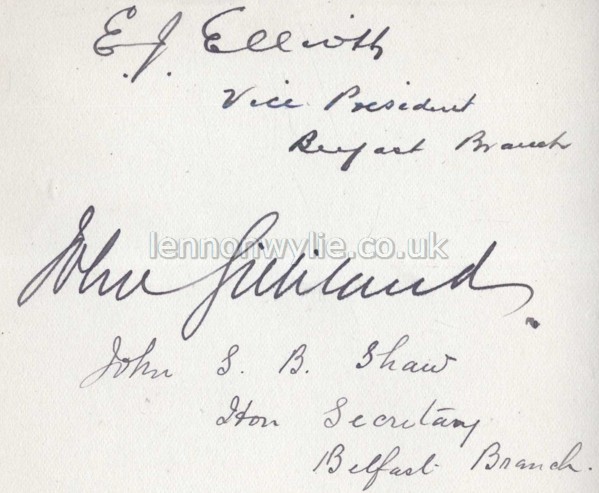 E. J. Elliott
Vice President
Belfast Branch
lennonwylie.co.uk
John Gilliland
John S. B. Shaw
Hon Secretary
Belfast Branch.